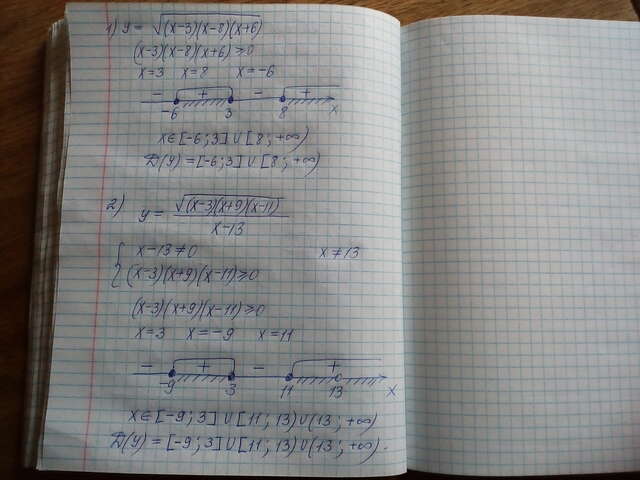 1) y = √(x-3)(x-8)(x+6)
(x-3)(x-8)(x+6) ≥ 0
x=3 x=8 x=-6
- + - +
-6 3 8 x
x∈[-6; 3] ∪ [8; +∞)
D(y) = [-6; 3] ∪ [8; +∞)
2) y = √(x-3)(x+9)(x-11) / x-13
{ x-13≠0 x≠13
(x-3)(x+9)(x-11) ≥ 0
(x-3)(x+9)(x-11) ≥ 0
x=3 x=-9 x=11
- + - +
-9 3 11 13 x
x∈[-9; 3] ∪ [11; 13) ∪ (13; +∞)
D(y) = [-9; 3] ∪ [11; 13) ∪ (13; +∞).